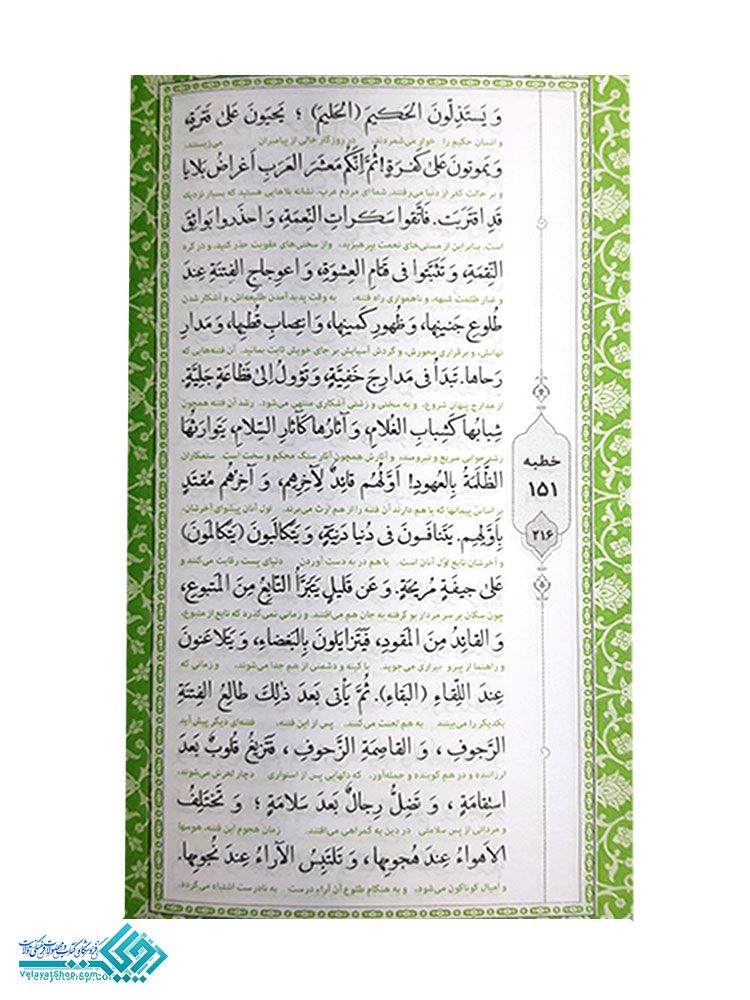 وَ يَستَذِلّونَ الحَكيمَ (الحَليمَ) ؛ يَحيَونَ عَلىٰ فَترَةٍ،
و انسان حکیم را خوار می‌شمردند در روزگار خالی از پیامبران می‌زیستند،
وَ يَموتونَ عَلىٰ كَفرَةٍ! ثُمَّ إنَّكُم مَعشَرَ العَرَبِ أغراضُ بَلايا
و بر حالت کفر از دنیا می‌رفتند. شما ای مردم عرب، نشانه بلاهایی هستید که بسیار نزدیک
قَدِ اقتَرَبَت. فَاتَّقوا سَكَراتِ النِّعمَةِ، وَ احذَروا بَوائِقَ
است. بنابراین از مستی‌های نعمت بپرهیزید، و از سختی‌های عقوبت حذر کنید، و در گرد
النِّقمَةِ، وَ تَثَبَّتوا فى قَتامِ العِشوَةِ، وَ اعوِجاجِ الفِتنَةِ عِندَ
و غبار ظلمت شبهه، و ناهمواری راه فتنه، به وقت پدید آمدن طلیعه‌اش، و آشکار شدن
طُلوعِ جَنينِها، وَ ظُهورِ كَمينِها، وَ انتِصابِ قُطبِها، وَ مَدارِ
نهانش، و برقراری محورش، و گردش آسیایش بر جای خویش ثابت بمانید. آن فتنه‌هایی که
رَحاها. تَبدَأُ فى مَدارِجَ خَفِيَّةٍ، وَ تَؤولُ إلىٰ فَظاعَةٍ جَلِيَّةٍ.
از مدارج پنهان شروع، و به سختی و زشتی آشکاری منتهی می‌شود. رشد آن فتنه همچون
شِبابُها كَشِبابِ الغُلامِ، وَ آثارُها كَآثارِ السِّلامِ، يَتَوارَثُهَا
رشد جوانی سریع و نیرومند، و آثارش همچون آثار سنگ محکم و سخت است. ستمکاران
الظَّلَمَةُ بِالعُهودِ! أوَّلُهُم قائِدٌ لِآخِرِهِم، وَ آخِرُهُم مُقتَدٍ
بر اساس پیمانها که با هم دارند آن فتنه را از هم ارث می‌برند. اول آنان پیشوای آخرشان،
بِأوَّلِهِم. يَتَنافَسونَ فى دُنيا دَنِيَّةٍ، وَ يَتَكالَبونَ (يَتَكالَمونَ)
و آخرشان تابع اوّل آنان است. با هم در به دست آوردن دنیای پست رقابت می‌کنند و
عَلىٰ جيفَةٍ مُريحَةٍ. وَ عَن قَليلٍ يَتَبَرَّأُ التّابِعُ مِنَ المَتبوعِ،
چون سگان بر سر مردار بو گرفته به جان هم می‌افتند. و زمانی نمی‌گذرد که تابع از متبوع،
وَ القائِدُ مِنَ المَقودِ، فَيَتَزايَلونَ بِالبَغضاءِ، وَ يَتَلاعَنونَ
و راهنما از پیرو بیزاری می‌جوید. با کینه و دشمنی از هم جدا می‌شوند، و زمانی که
عِندَ اللِّقاءِ (البَقاءِ). ثُمَّ يَأتى بَعدَ ذٰلِكَ طالِعُ الفِتنَةِ
یکدیگر را می‌بینند به هم لعنت می‌کنند. پس از این فتنه، فتنه‌ای دیگر پیش آید
الرَّجوفِ ، وَ القاصِمَةِ الزَّحوفِ ، فَتَزيغُ قُلوبٌ بَعدَ
لرزاننده و در هم کوبنده و حمله‌آور، که دلهایی پس از استواری دچار لغزش می‌شوند،
استِقامَةٍ ، وَ تَضِلُّ رِجالٌ بَعدَ سَلامَةٍ ؛ وَ تَختَلِفُ
و مردانی از پس سلامتی در دین به گمراهی می‌افتند. زمان هجوم این فتنه، هوسها
الأهواءُ عِندَ هُجومِها، وَ تَلتَبِسُ الآراءُ عِندَ نُجومِها.
و امیال گوناگون می‌شود، و به هنگام طلوع آن آراء درست به نادرست اشتباه می‌گردد.
خطبه
۱۵۱
۲۱۶
VelayatShop.com
Velayatshop.com